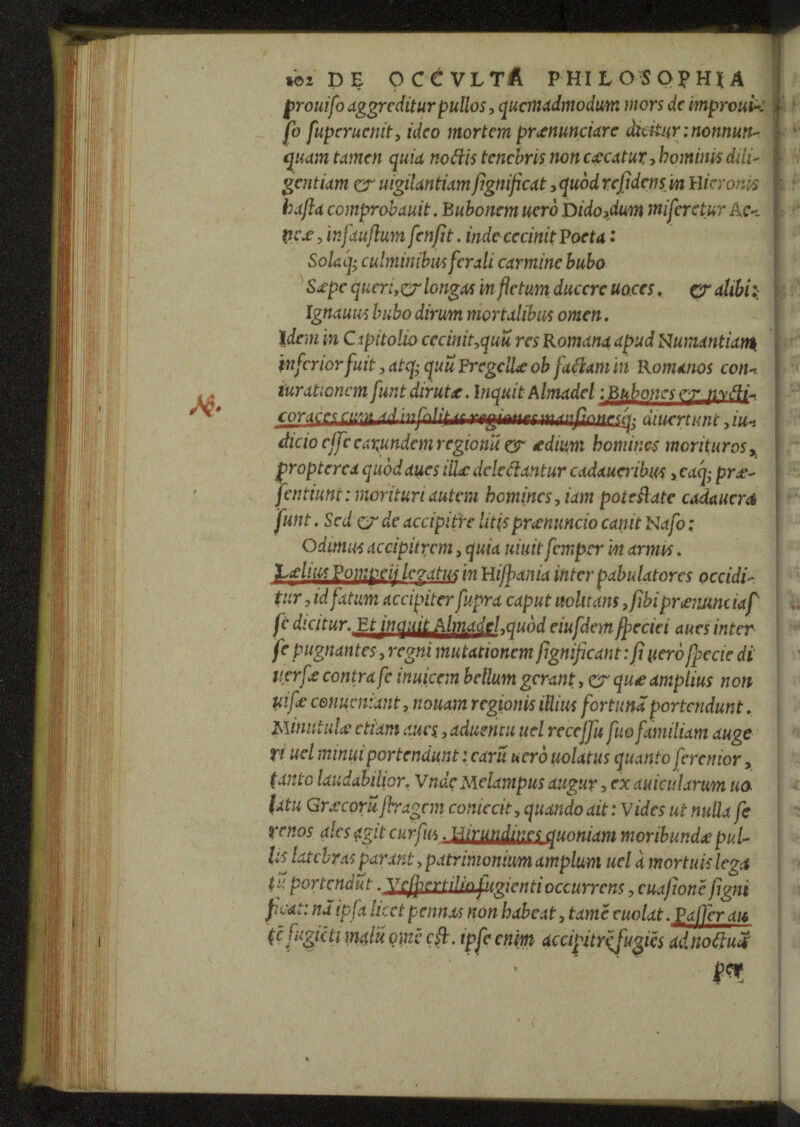 102 DE OCCVLTA PHILOSOPHIA
prouiſo aggreditur pullos, quemadmodum mors de improui-
ſo ſuperuenit, ideo mortem prænunciare dicitur: nonnun-
quam tamen quia noctis tenebris non cæcatur, hominis dili-
gentiam & uigilantiam ſignificat, quòd reſidens in Hieronis
haſta comprobauit. Bubonem uerò Dido, dum miſeretur Ae-
neæ, infauſtum ſenſit. inde cecinit Poeta:
Solaq; culminibus ferali carmine bubo
Sæpe queri, & longas in fletum ducere uoces. & alibi:
Ignauus bubo dirum mortalibus omen.
Idem in Capitolio cecinit, quū res Romana apud Numantiam
inferior fuit, atq; quū Fregellæ ob factam in Romanos con-
iurationem ſunt dirutæ. Inquit Almadel: Bubones & nycti-
coraces cum ad inſolitas regiones manſionesq; diuertunt, iu-
dicio eſſe earundem regionū & ædium homines morituros,
propterea quòd aues illæ delectantur cadaueribus, eaq; præ-
ſentiunt: morituri autem homines, iam poteſtate cadauera
ſunt. Sed & de accipitre litis prænuncio canit Naſo:
Odimus accipitrem, quia uiuit ſemper in armis.
Lælius Pompeij legatus in Hiſpania inter pabulatores occidi-
tur, id fatum accipiter ſupra caput uolitans, ſibi prænunciaſ
ſe dicitur. Et inquit Almadel, quòd eiuſdem ſpeciei aues inter
ſe pugnantes, regni mutationem ſignificant: ſi uerò ſpecie di
uerſæ contra ſe inuicem bellum gerant, & quæ amplius non
uiſæ conueniant, nouam regionis illius fortunā portendunt.
Minutulæ etiam aues, aduentu uel receſſu ſuo familiam auge
ri uel minui portendunt: earū uerò uolatus quanto ſerenior,
tanto laudabilior. Vnde Melampus augur, ex auicularum uo
latu Græcorū ſtragem coniecit, quando ait: Vides ut nulla ſe
renos ales agit curſus. Hirundines quoniam moribundæ pul-
lis latebras parant, patrimonium amplum uel à mortuis lega
tū portendūt. Veſpertilio fugienti occurrens, euaſionē ſigni
ficat: nā ipſa licet pennas non habeat, tamē euolat. Paſſer au
tē fugiēti malū omē eſt. ipſe enim accipitrē fugiēs ad noctuā
per